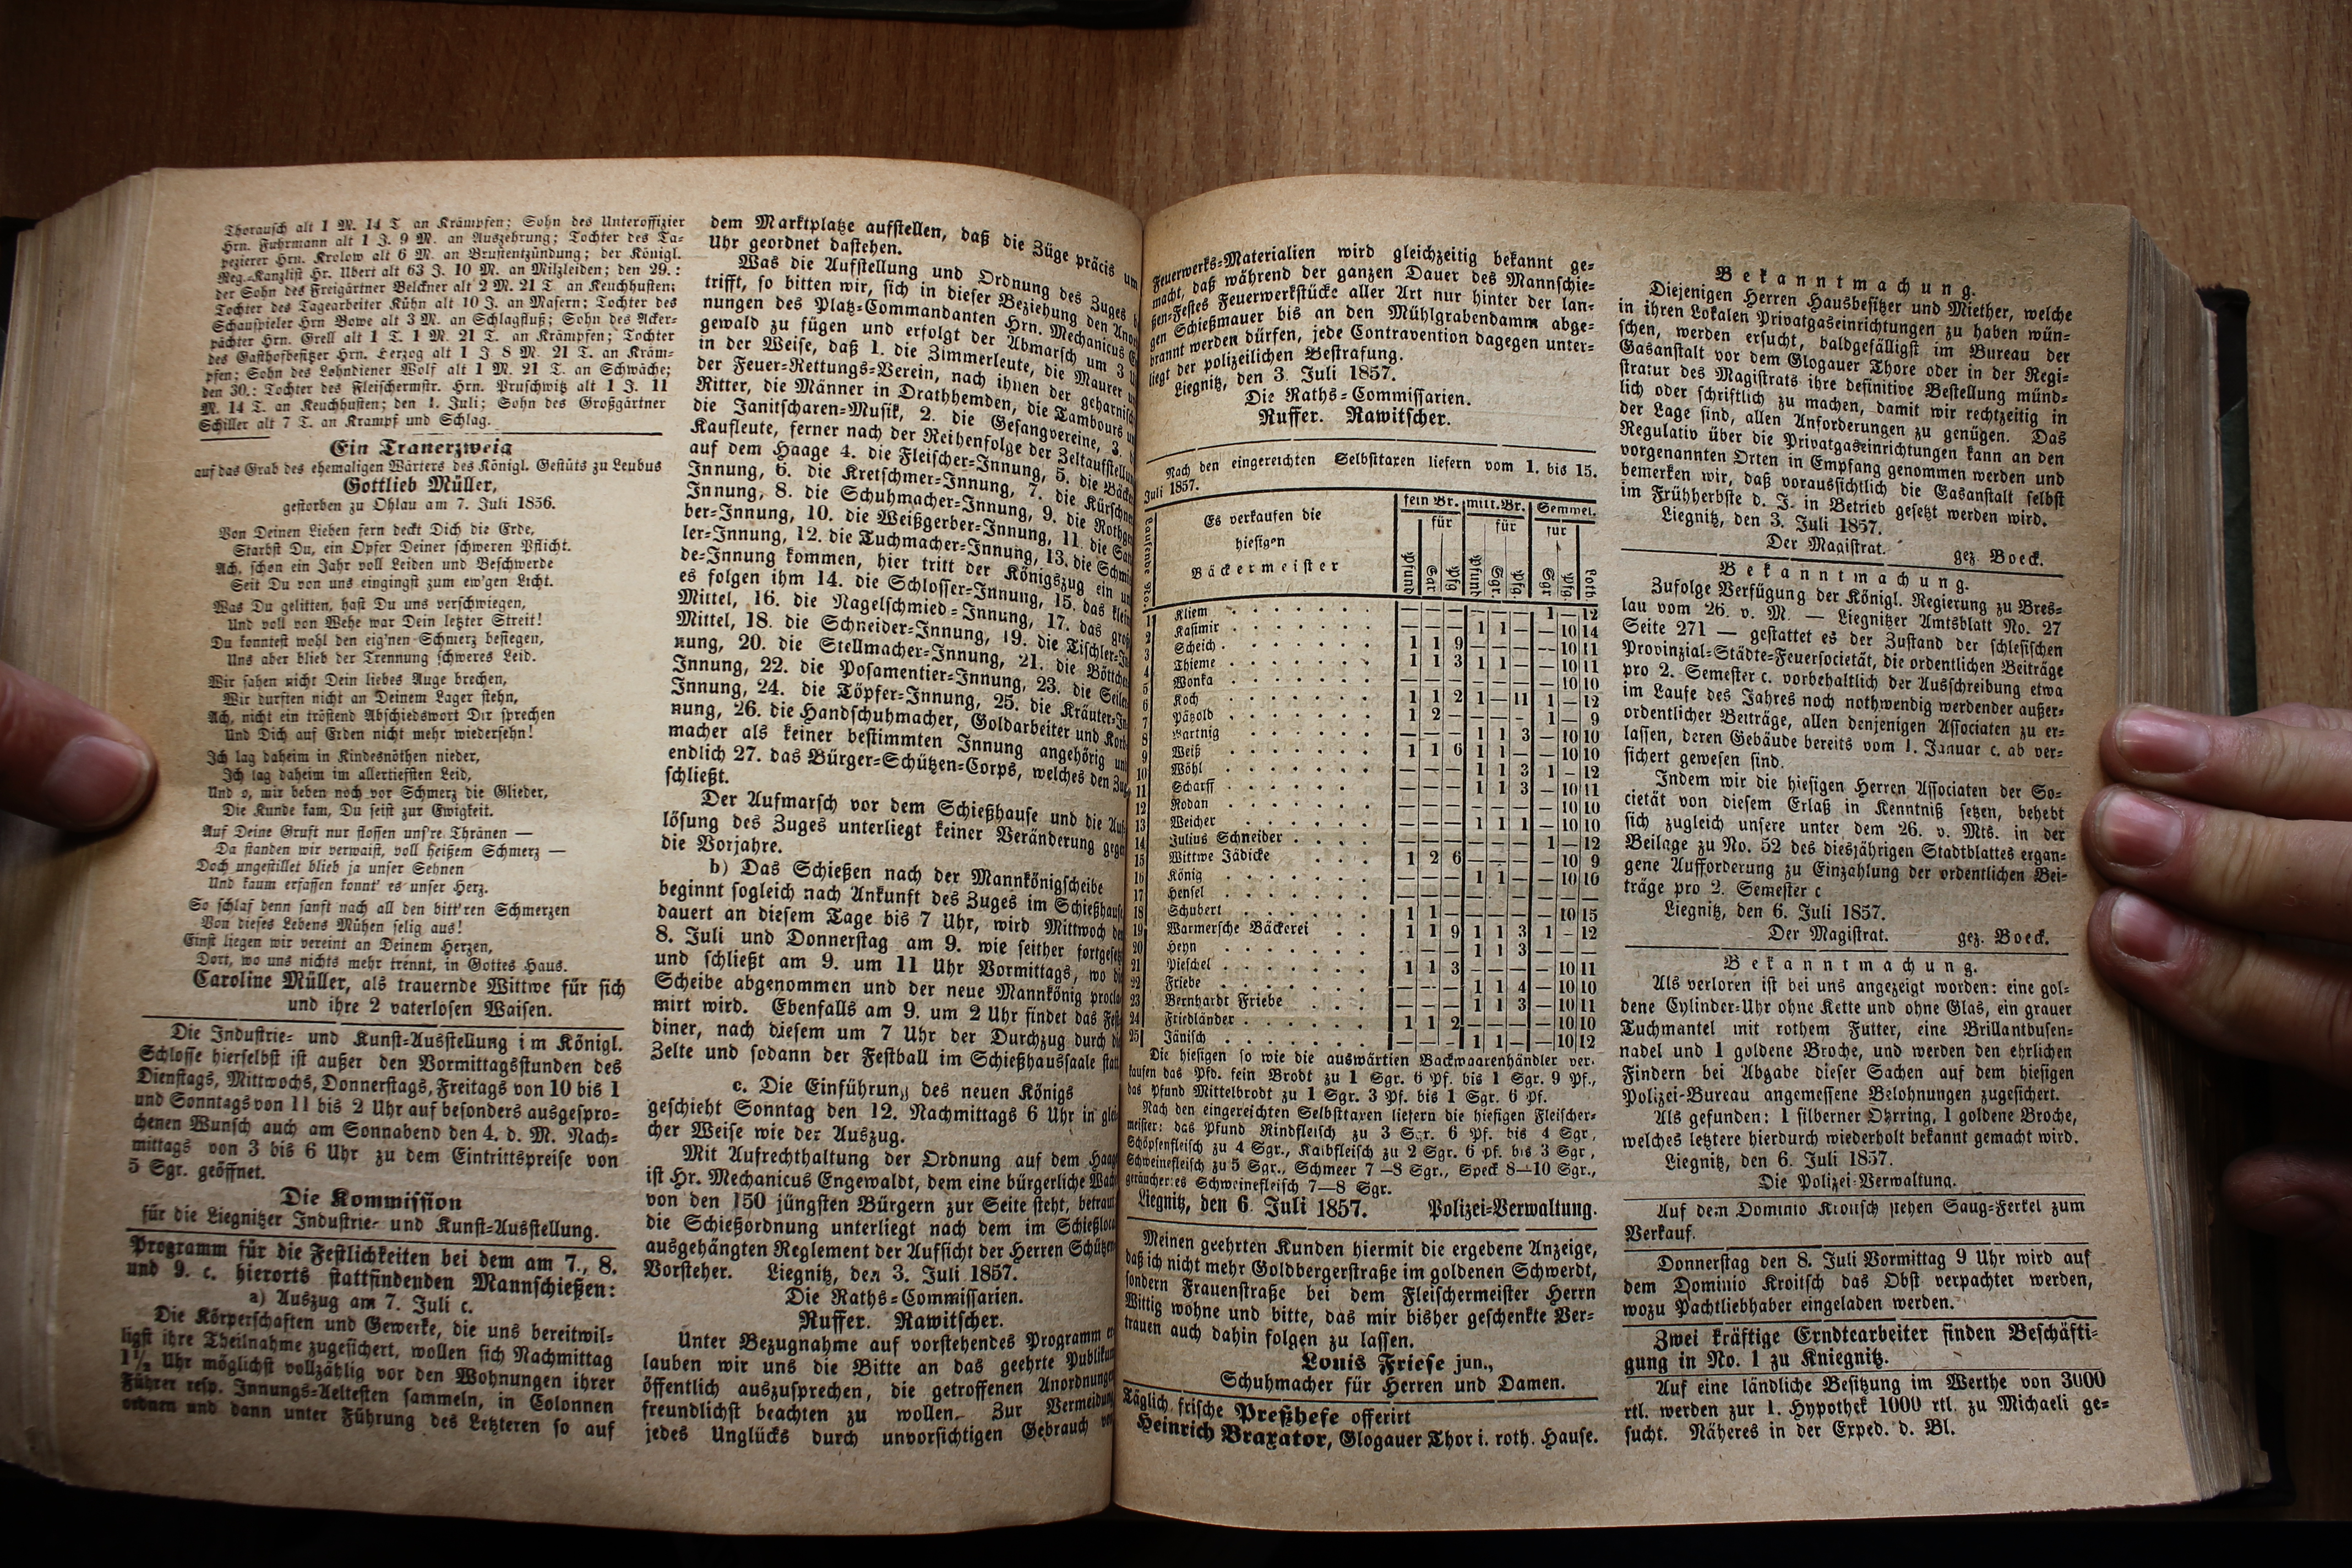 Thorausch alt 1 M. 14 T. an Krämpfen; Sohn des Unteroffizier
Hrn. Fuhrmann alt 1 J. 9 M. an Auszehrung; Tochter des Ta-
pezierer Hrn. Krolow alt 6 M. an Brustentzündung; der Königl.
Reg.-Kanzlist Hr. Ubert alt 63 J. 10 M. an Milzleiden; den 29.:
der Sohn des Freigärtner Belckner alt 2 M. 21 T. an Keuchhusten;
Tochter des Tagearbeiter Kühn alt 10 J. an Masern; Tochter des
Schauspieler Hrn Bowe alt 3 M. an Schlagfluß; Sohn des Acker-
pächter Hrn. Grell alt 1 T. 1 M. 21 T. an Krämpfen; Tochter
des Gasthofbesitzer Hrn. Herzog alt 1 J 8 M. 21 T. an Kräm-
pfen; Sohn des Lohndiener Wolf alt 1 M. 21 T. an Schwäche;
den 30.: Tochter des Fleischermstr. Hrn. Pruschwitz alt 1 J. 11
M. 14 T. an Keuchhusten; den 1. Juli; Sohn des Großgärtner
Schiller alt 7 T. an Krampf und Schlag.
Ein Trauerzweig
auf das Grab des ehemaligen Wärters des Königl. Gestüts zu Leubus
Gottlieb Müller,
gestorben zu Ohlau am 7. Juli 1856.
Von Deinen Lieben fern deckt Dich die Erde,
Starbst Du, ein Opfer Deiner schweren Pflicht.
Ach, schon ein Jahr voll Leiden und Beschwerde
Seit Du von uns eingingst zum ew'gen Licht.
Was Du gelitten, hast Du uns verschwiegen,
Und voll von Wehe war Dein letzter Streit!
Du konntest wohl den eig'nen Schmerz besiegen,
Uns aber blieb der Trennung schweres Leid.
Wir sahen nicht Dein liebes Auge brechen,
Wir durften nicht an Deinem Lager stehn,
Ach, nicht ein tröstend Abschiedswort Dir sprechen
Und Dich auf Erden nicht mehr wiedersehn!
Ich lag daheim in Kindesnöthen nieder,
Ich lag daheim im allertiefsten Leid,
Und o, mir beben noch vor Schmerz die Glieder,
Die Kunde kam, Du seist zur Ewigkeit.
Auf Deine Gruft nur flossen uns're Thränen —
Da standen wir verwaist, voll heißem Schmerz —
Doch ungestillet blieb ja unser Sehnen
Und kaum erfassen konnt' es unser Herz.
So schlaf denn sanft nach all den bitt'ren Schmerzen
Von dieses Lebens Mühen selig aus!
Einst liegen wir vereint an Deinem Herzen,
Dort, wo uns nichts mehr trennt, in Gottes Haus.
Caroline Müller, als trauernde Wittwe für sich
und ihre 2 vaterlosen Waisen.
Die Industrie- und Kunst-Ausstellung im Königl.
Schlosse hierselbst ist außer den Vormittagsstunden des
Dienstags, Mittwochs, Donnerstags, Freitags von 10 bis 1
und Sonntags von 11 bis 2 Uhr auf besonders ausgespro-
chenen Wunsch auch am Sonnabend den 4. d. M. Nach-
mittags von 3 bis 6 Uhr zu dem Eintrittspreise von
5 Sgr. geöffnet.
Die Kommission
für die Liegnitzer Industrie- und Kunst-Ausstellung.
Programm für die Festlichkeiten bei dem am 7., 8.
und 9. c. hierorts stattfindenden Mannschießen:
a) Auszug am 7. Juli c.
Die Körperschaften und Gewerke, die uns bereitwil-
ligst ihre Theilnahme zugesichert, wollen sich Nachmittag
1½ Uhr möglichst vollzählig vor den Wohnungen ihrer
Führer resp. Innungs-Aeltesten sammeln, in Colonnen
ordnen und dann unter Führung des Letzteren so auf
dem Marktplatze aufstellen, daß die Züge präcis um
Uhr geordnet dastehen.
Was die Aufstellung und Ordnung des Zuges
trifft, so bitten wir, sich in dieser Beziehung den Anor
nungen des Platz-Commandanten Hrn. Mechanicus
gewald zu fügen und erfolgt der Abmarsch um 3
in der Weise, daß 1. die Zimmerleute, die Maurer
der Feuer-Rettungs-Verein, nach ihnen der geharnisch
Ritter, die Männer in Drathhemden, die Tambours
die Janitscharen-Musik, 2. die Gesangvereine, 3.
Kaufleute, ferner nach der Reihenfolge der Zeltaufstellun
auf dem Haage 4. die Fleischer-Innung, 5. die Bäck
Innung, 6. die Kretschmer-Innung, 7. die Kürschner
Innung, 8. die Schuhmacher-Innung, 9. die Rothg
ber-Innung, 10. die Weißgerber-Innung, 11. die Sat
ler-Innung, 12. die Tuchmacher-Innung, 13. die Schmi
de-Innung kommen, hier tritt der Königszug ein un
es folgen ihm 14. die Schlosser-Innung, 15. das klei
Mittel, 16. die Nagelschmied-Innung, 17. das gro
Mittel, 18. die Schneider-Innung, 19. die Tischler-
nung, 20. die Stellmacher-Innung, 21. die Böttche
Innung, 22. die Posamentier-Innung, 23. die Seile
Innung, 24. die Töpfer-Innung, 25. die Kräuter-In
nung, 26. die Handschuhmacher, Goldarbeiter und Korb
macher als keiner bestimmten Innung angehörig un
endlich 27. das Bürger-Schützen-Corps, welches den Zug
schließt.
Der Aufmarsch vor dem Schießhause und die Auf
lösung des Zuges unterliegt keiner Veränderung gege
die Vorjahre.
b) Das Schießen nach der Mannkönigscheibe
beginnt sogleich nach Ankunft des Zuges im Schießhaus
dauert an diesem Tage bis 7 Uhr, wird Mittwoch de
8. Juli und Donnerstag am 9. wie seither fortgeset
und schließt am 9. um 11 Uhr Vormittags, wo di
Scheibe abgenommen und der neue Mannkönig procla
mirt wird. Ebenfalls am 9. um 2 Uhr findet das Fest
diner, nach diesem um 7 Uhr der Durchzug durch di
Zelte und sodann der Festball im Schießhaussaale statt
c. Die Einführung des neuen Königs
geschieht Sonntag den 12. Nachmittags 6 Uhr in glei
cher Weise wie der Auszug.
Mit Aufrechthaltung der Ordnung auf dem Haage
ist Hr. Mechanicus Engewaldt, dem eine bürgerliche Wach
von den 150 jüngsten Bürgern zur Seite steht, betraut
die Schießordnung unterliegt nach dem im Schießloca
ausgehängten Reglement der Aufsicht der Herren Schützen
Vorsteher. Liegnitz, den 3. Juli 1857.
Die Raths-Commissarien.
Ruffer. Rawitscher.
Unter Bezugnahme auf vorstehendes Programm er
lauben wir uns die Bitte an das geehrte Publikum
öffentlich auszusprechen, die getroffenen Anordnunge
freundlichst beachten zu wollen. Zur Vermeidung
jedes Unglücks durch unvorsichtigen Gebrauch von
Feuerwerks-Materialien wird gleichzeitig bekannt ge-
macht, daß während der ganzen Dauer des Mannschie-
ßen-Festes Feuerwerkstücke aller Art nur hinter der lan-
gen Schießmauer bis an den Mühlgrabendamm abge-
brannt werden dürfen, jede Contravention dagegen unter-
liegt der polizeilichen Bestrafung.
Liegnitz, den 3. Juli 1857.
Die Raths-Commissarien.
Ruffer. Rawitscher.
Nach den eingereichten Selbsttaxen liefern vom 1. bis 15.
Juli 1857.
Laufende No. Es verkaufen die hiesigen Bäckermeister fein Br. für mitt. Br. für Semmel. für
Pfund Sgr Pfg Pfund Sgr. Pfg. Sgr Pfg Loth.
1 Kliem — — — — — — 1 — 12
2 Kasimir — — — 1 1 — — 10 14
3 Scheich 1 1 9 — — — — 10 11
4 Thieme 1 1 3 1 1 — — 10 11
5 Wonka — — — — — — — 10 10
6 Koch 1 1 2 1 — 11 1 — 12
7 Pätzold 1 2 — — — — 1 — 9
8 Hartnig — — — 1 1 3 — 10 10
9 Weiß 1 1 6 1 1 — — 10 10
10 Wöhl — — — 1 1 3 1 — 12
11 Scharff — — — 1 1 3 — 10 11
12 Rodan — — — — — — — 10 10
13 Weicher — — — 1 1 1 — 10 10
14 Julius Schneider — — — — — — 1 — 12
15 Wittwe Jädicke 1 2 6 — — — — 10 9
16 König — — — 1 1 — — 10 10
17 Hensel — — — — — — — — —
18 Schubert 1 1 — — — — — 10 15
19 Warmersche Bäckerei 1 1 9 1 1 3 1 — 12
20 Heyn — — — 1 1 3 — — —
21 Pieschel 1 1 3 — — — — 10 11
22 Friebe — — — 1 1 4 — 10 10
23 Bernhardt Friebe — — — 1 1 3 — 10 11
24 Friedländer 1 1 2 — — — — 10 10
25 Jänisch — — — 1 1 — — 10 12
Die hiesigen so wie die auswärtien Backwaarenhändler ver-
kaufen das Pfd. fein Brodt zu 1 Sgr. 6 Pf. bis 1 Sgr. 9 Pf.,
das Pfund Mittelbrodt zu 1 Sgr. 3 Pf. bis 1 Sgr. 6 Pf.
Nach den eingereichten Selbsttaxen liefern die hiesigen Fleischer-
meister: das Pfund Rindfleisch zu 3 Sgr. 6 Pf. bis 4 Sgr,
Schöpsenfleisch zu 4 Sgr., Kalbfleisch zu 2 Sgr. 6 Pf. bis 3 Sgr,
Schweinefleisch zu 5 Sgr., Schmeer 7—8 Sgr., Speck 8—10 Sgr.,
geräuchertes Schweinefleisch 7—8 Sgr.
Liegnitz, den 6. Juli 1857. Polizei-Verwaltung.
Meinen geehrten Kunden hiermit die ergebene Anzeige,
daß ich nicht mehr Goldbergerstraße im goldenen Schwerdt,
sondern Frauenstraße bei dem Fleischermeister Herrn
Wittig wohne und bitte, das mir bisher geschenkte Ver-
trauen auch dahin folgen zu lassen.
Louis Friese jun.,
Schuhmacher für Herren und Damen.
Täglich frische Preßhefe offerirt
Heinrich Braxator, Glogauer Thor i. roth. Hause.
Bekanntmachung.
Diejenigen Herren Hausbesitzer und Miether, welche
in ihren Lokalen Privatgaseinrichtungen zu haben wün-
schen, werden ersucht, baldgefälligst im Bureau der
Gasanstalt vor dem Glogauer Thore oder in der Regi-
stratur des Magistrats ihre definitive Bestellung münd-
lich oder schriftlich zu machen, damit wir rechtzeitig in
der Lage sind, allen Anforderungen zu genügen. Das
Regulativ über die Privatgaseinrichtungen kann an den
vorgenannten Orten in Empfang genommen werden und
bemerken wir, daß voraussichtlich die Gasanstalt selbst
im Frühherbste d. J. in Betrieb gesetzt werden wird.
Liegnitz, den 3. Juli 1857.
Der Magistrat. gez. Boeck.
Bekanntmachung.
Zufolge Verfügung der Königl. Regierung zu Bres-
lau vom 26. v. M. — Liegnitzer Amtsblatt No. 27
Seite 271 — gestattet es der Zustand der schlesischen
Provinzial-Städte-Feuersocietät, die ordentlichen Beiträge
pro 2. Semester c. vorbehaltlich der Ausschreibung etwa
im Laufe des Jahres noch nothwendig werdender außer-
ordentlicher Beiträge, allen denjenigen Associaten zu er-
lassen, deren Gebäude bereits vom 1. Januar c. ab ver-
sichert gewesen sind.
Indem wir die hiesigen Herren Associaten der So-
cietät von diesem Erlaß in Kenntniß setzen, behebt
sich zugleich unsere unter dem 26. v. Mts. in der
Beilage zu No. 52 des diesjährigen Stadtblattes ergan-
gene Aufforderung zu Einzahlung der ordentlichen Bei-
träge pro 2. Semester c
Liegnitz, den 6. Juli 1857.
Der Magistrat. gez. Boeck.
Bekanntmachung.
Als verloren ist bei uns angezeigt worden: eine gol-
dene Cylinder-Uhr ohne Kette und ohne Glas, ein grauer
Tuchmantel mit rothem Futter, eine Brillantbusen-
nadel und 1 goldene Broche, und werden den ehrlichen
Findern bei Abgabe dieser Sachen auf dem hiesigen
Polizei-Bureau angemessene Belohnungen zugesichert.
Als gefunden: 1 silberner Ohrring, 1 goldene Broche,
welches letztere hierdurch wiederholt bekannt gemacht wird.
Liegnitz, den 6. Juli 1857.
Die Polizei-Verwaltung.
Auf dem Dominio Kroitsch stehen Saug-Ferkel zum
Verkauf.
Donnerstag den 8. Juli Vormittag 9 Uhr wird auf
dem Dominio Kroitsch das Obst verpachtet werden,
wozu Pachtliebhaber eingeladen werden.
Zwei kräftige Erndtearbeiter finden Beschäfti-
gung in No. 1 zu Kniegnitz.
Auf eine ländliche Besitzung im Werthe von 3000
rtl. werden zur 1. Hypothek 1000 rtl. zu Michaeli ge-
sucht. Näheres in der Exped. d. Bl.